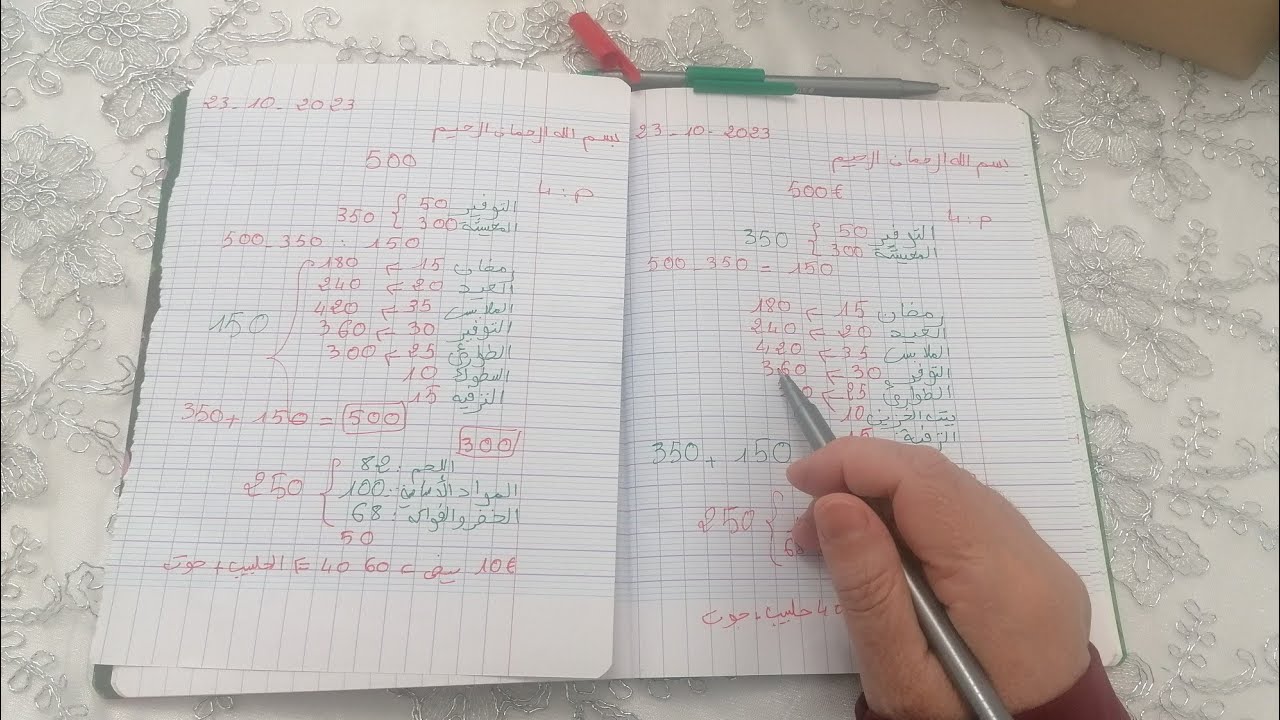 23-10-2023
بسم الله الرحمان الرحيم
500
م : 4
التوفير 50
المعيشة 300 } 350
500-350 : 150
رمضان 15 → 180
العيد 20 → 240
الملابس 35 → 420
التوفير 30 → 360
الطوارئ 25 → 300
10
الترفيه 15
150
350 + 150 = 500
300
اللحم : 82
المواد الأساسية : 100
الخضر والفواكه : 68
250
50
10€ سيفي = 60 40 = الحليب + حوت
23-10-2023
بسم الله الرحمان الرحيم
500€
م : 4
التوفير 50
المعيشة 300 } 350
500-350 = 150
رمضان 15 → 180
العيد 20 → 240
الملابس 35 → 420
التوفر 30 → 360
الطوارئ 25
10
350 + 150
250
68
حليب + حوت